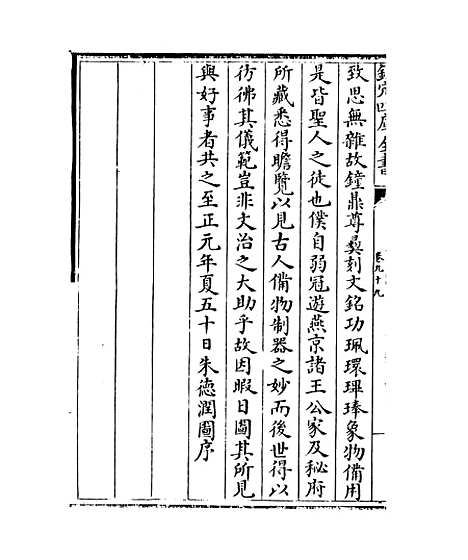 欽定四庫全書
卷九十九
致思無雜故鐘鼎尊彝刻文銘功珮環琕琫象物備用
是皆聖人之徒也僕自弱冠遊燕京諸王公家及秘府
所藏悉得瞻覽以見古人備物制器之妙而後世得以
彷彿其儀範豈非文治之大助乎故因暇日圖其所見
與好事者共之至正元年夏五十日朱德潤圖序